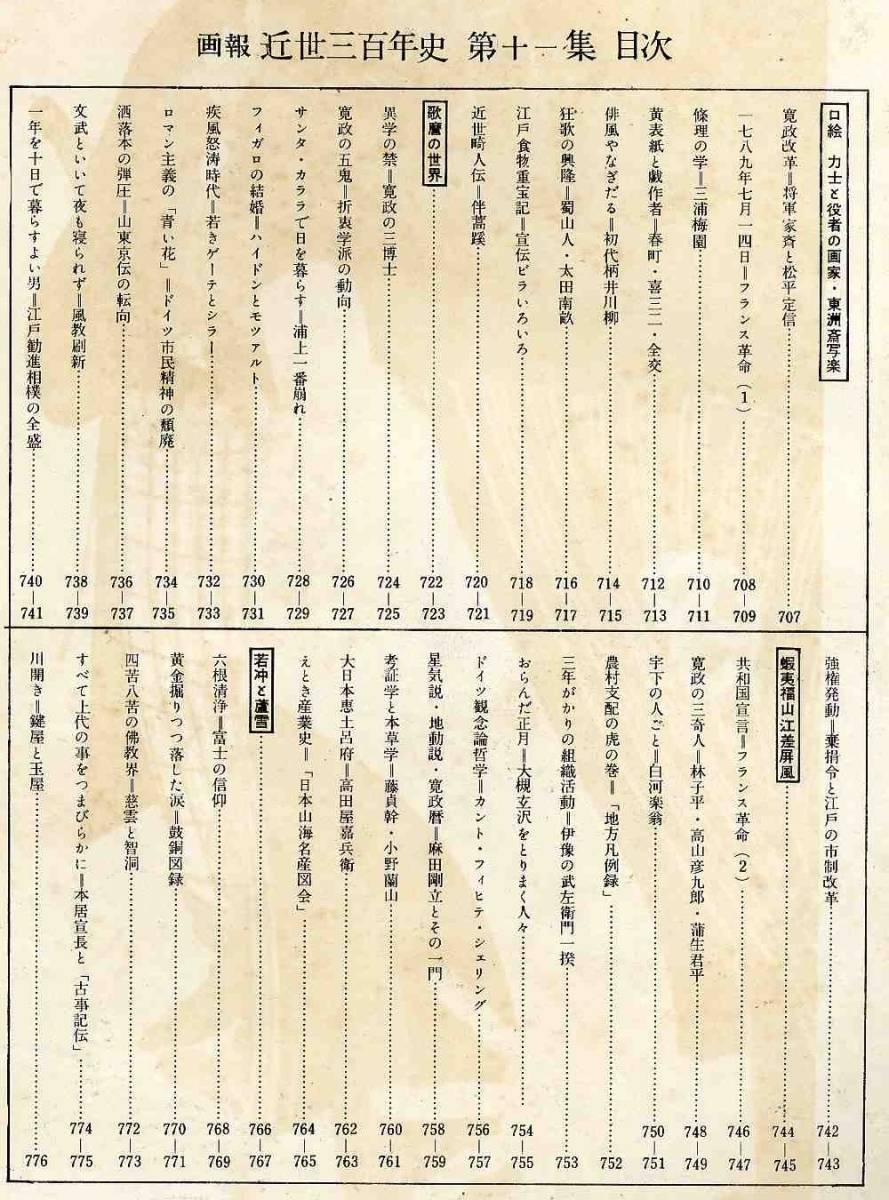 画報 近世三百年史 第十一集 目次
口絵 力士と役者の画家・東洲斎写楽
寛政改革＝将軍家斉と松平定信……707
一七八九年七月一四日＝フランス革命（1）……708―709
條理の学＝三浦梅園……710―711
黄表紙と戯作者＝春町・喜三二・全交……712―713
俳風やなぎだる＝初代柄井川柳……714―715
狂歌の興隆＝蜀山人・太田南畝……716―717
江戸食物重宝記＝宣伝ビラいろいろ……718―719
近世畸人伝＝伴蒿蹊……720―721
歌麿の世界……722―723
異学の禁＝寛政の三博士……724―725
寛政の五鬼＝折衷学派の動向……726―727
サンタ・カララで日を暮らす＝浦上一番崩れ……728―729
フィガロの結婚＝ハイドンとモツアルト……730―731
疾風怒涛時代＝若きゲーテとシラー……732―733
ロマン主義の「青い花」＝ドイツ市民精神の頽廃……734―735
洒落本の弾圧＝山東京伝の転向……736―737
文武といいて夜も寝られず＝風教刷新……738―739
一年を十日で暮らすよい男＝江戸勧進相撲の全盛……740―741
強権発動＝棄捐令と江戸の市制改革……742―743
蝦夷福山江差屏風……744―745
共和国宣言＝フランス革命（2）……746―747
寛政の三奇人＝林子平・高山彦九郎・蒲生君平……748―749
宇下の人ごと＝白河楽翁……750―751
農村支配の虎の巻＝「地方凡例録」……752
三年がかりの組織活動＝伊豫の武左衛門一揆……753
おらんだ正月＝大槻玄沢をとりまく人々……754―755
ドイツ観念論哲学＝カント・フィヒテ・シェリング……756―757
星気説・地動説・寛政暦＝麻田剛立とその一門……758―759
考証学と本草学＝藤貞幹・小野蘭山……760―761
大日本恵土呂府＝高田屋嘉兵衛……762―763
えとき産業史＝「日本山海名産図会」……764―765
若冲と蘆雪……766―767
六根清浄＝富士の信仰……768―769
黄金掘りつつ落した涙＝鼓銅図録……770―771
四苦八苦の佛教界＝慈雲と智洞……772―773
すべて上代の事をつまびらかに＝本居宣長と「古事記伝」……774―775
川開き＝鍵屋と玉屋……776